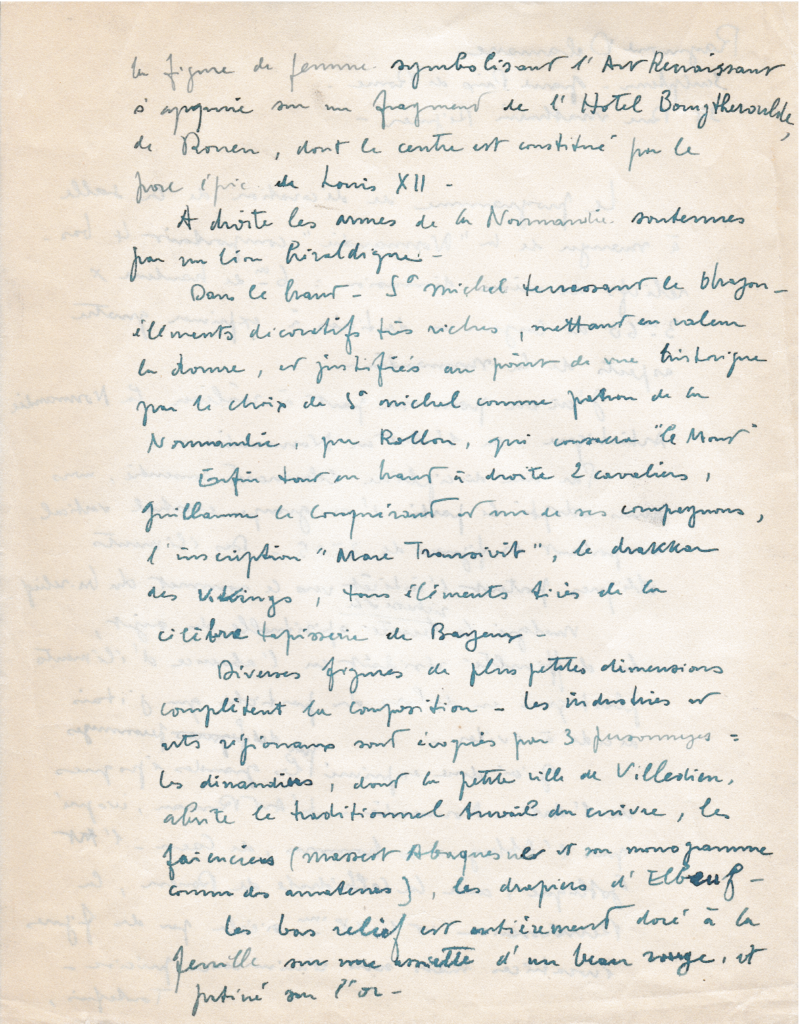 la figure de femme symbolisant l'Art Renaissant
s'appuie sur un fragment de l'Hotel Bourgtheroulde,
de Rouen, dont le centre est constitué par le
porc épic de Louis XII -
A droite les armes de la Normandie soutenues
par un lion héraldique. -
Dans le haut - St Michel terrassant le Dragon -
éléments décoratifs très riches, mettant en valeur
la dorure, et justifiés au point de vue historique
par le choix de St Michel comme patron de la
Normandie, par Rollon, qui consacra "le Mont"
Enfin tout en haut à droite 2 cavaliers,
Guillaume le Conquérant et un de ses compagnons,
l'inscription "Mare Transivit", le drakkar
des Vikings, tous éléments tirés de la
célèbre tapisserie de Bayeux -
Diverses figures de plus petites dimensions
complètent la composition - les industries et
arts régionaux sont évoqués par 3 personnages =
les dinandiers, dont la petite ville de Villedieu,
abrite le traditionnel travail du cuivre, les
faïenciers (Masseot Abaquesne et son monogramme
connu des amateurs), les drapiers d'Elbeuf -
Les bas relief est entièrement doré à la
feuille sur une assiette d'un beau rouge, et
patiné sur l'or -